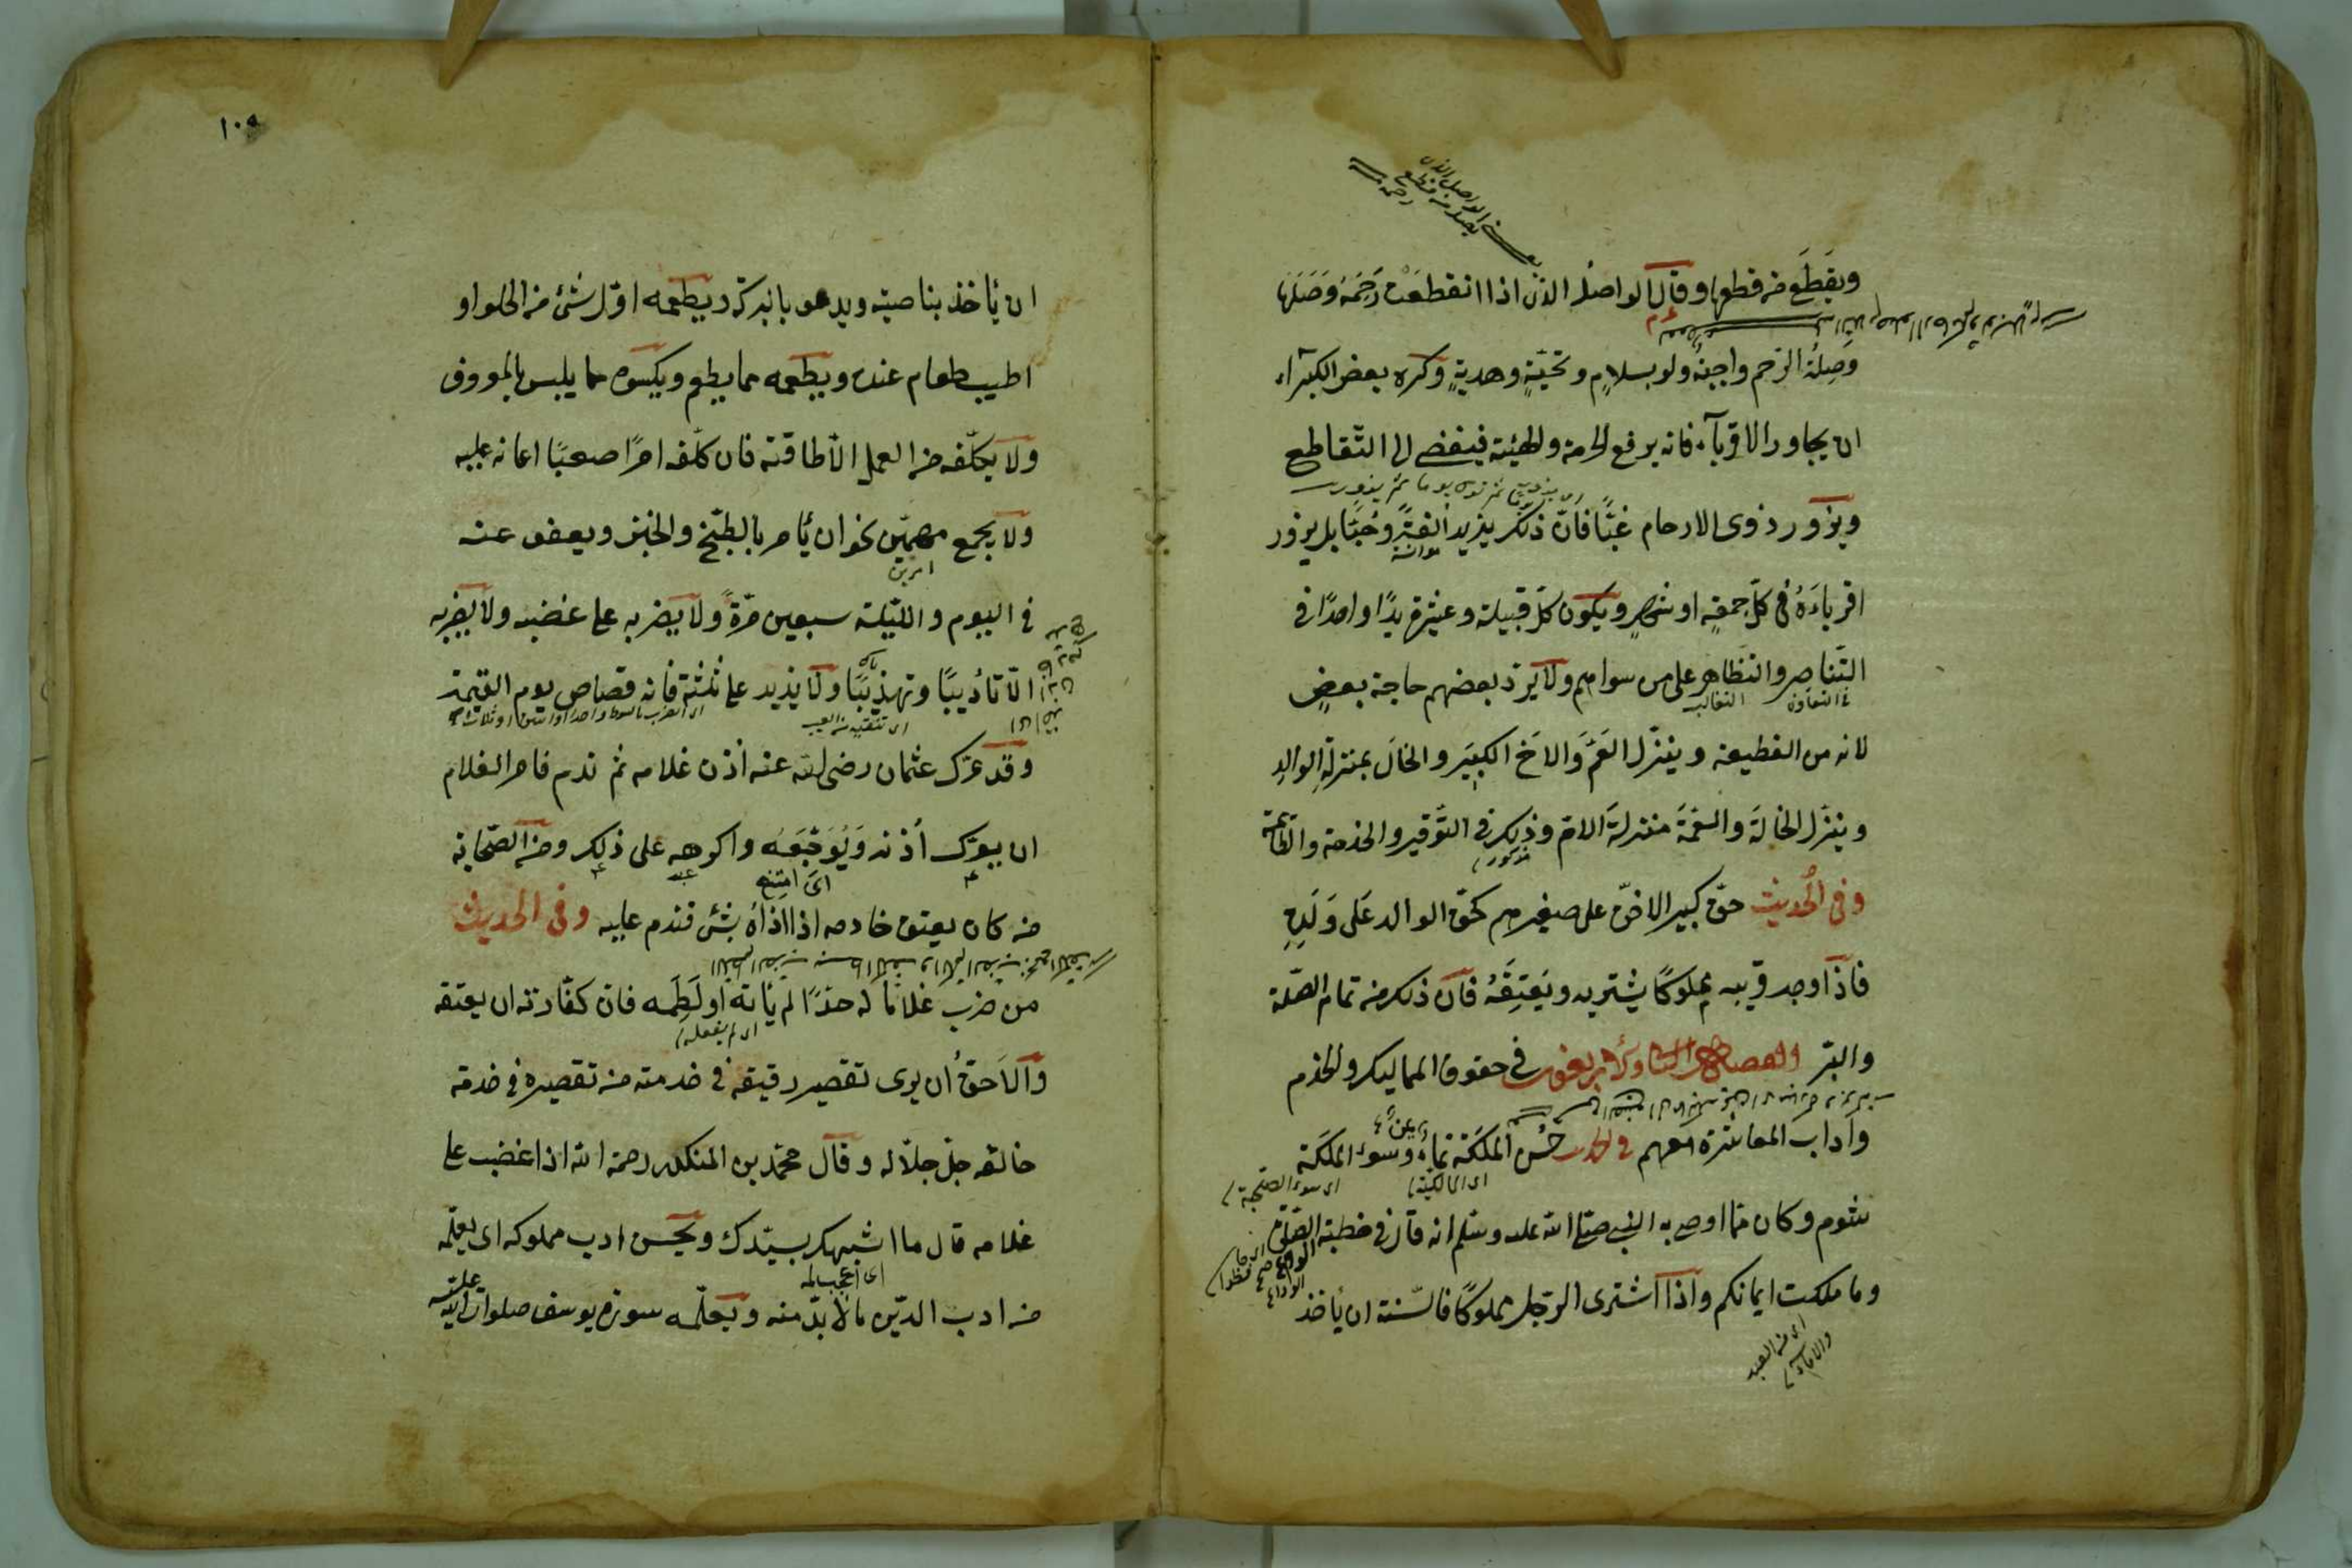 ويقطع من قطعها وقال الواصل الذى اذا انقطعت رحمه وصلها
وصلة الرحم واجبة ولو بسلام وتحية وهدية وكره بعض الكبراء
ان يجاور الاقرباء فانه يرفع الحرمة والهيئة فيفضى الى التقاطع
ويزور ذوى الارحام غبًّا فان ذلك يزيد ألفةً وحبًّا بل يزور
اقرباءه فى كل جمعة او شهر ويكون كل قبيلة وعشيرة يدًا واحدًا فى
التناصر والتظاهر على من سواهم ولا يرد بعضهم حاجة بعض
لانه من القطيعة وينزل العم والاخ الكبير والخال بمنزلة الوالد
وينزل الخالة والعمة منزلة الام وذلك فى التوقير والخدمة والطاعة
وفى الحديث حق كبير الاخوة على صغيرهم كحق الوالد على ولده
فاذا وجد قريبه مملوكًا يشتريه ويعتقه فان ذلك من تمام الصلة
والبر فى حقوق المماليك والخدم
وآداب المعاشرة معهم وفى الحديث حسن الملكة نماء وسوء الملكة
شوم وكان مما اوصى به النبى صلى الله عليه وسلم انه قال فى خطبة الصلوة
وما ملكت ايمانكم واذا اشترى الرجل مملوكًا فالسنة ان يأخذ
ان يأخذ بناصيته ويدعو بالبركة ويطعمه اول شئ من الحلو او
اطيب طعام عنده ويطعمه مما يطعم ويكسوه مما يلبس بالمعروف
ولا يكلفه من العمل الا طاقته فان كلفه امرًا صعبًا اعانه عليه
ولا يجمع مهمين نحو ان يأمر بالطبخ والخبز ويعفو عنه
امرين
فى اليوم والليلة سبعين مرةً ولا يضربه على غضبه ولا يضربه
الا تأديبًا وتهذيبًا ولا يزيد على ثلثة فانه قصاص يوم القيمة
وقد عرك عثمان رضى الله عنه أذن غلامه ثم ندم فامر الغلام
ان يعرك أذنه ويوجعه واكرهه على ذلك ومن الصحابة
اى امتنع
من كان يعتق خادمه اذا اذاه بشئ فندم عليه وفى الحديث
من ضرب غلامًا له حدًّا لم يأته او لطمه فان كفارته ان يعتقه
اى لم يفعله
والاحق أن يرى تقصير رقيقه فى خدمته من تقصيره فى خدمة
خالقه جل جلاله وقال محمد بن المنكدر رحمه الله اذا غضب على
غلامه قال ما اشبهك بسيدك ويحسن ادب مملوكه اى يعلمه
من ادب الدين ما لا بد منه ويعلمه سورة يوسف صلوات الله عليه